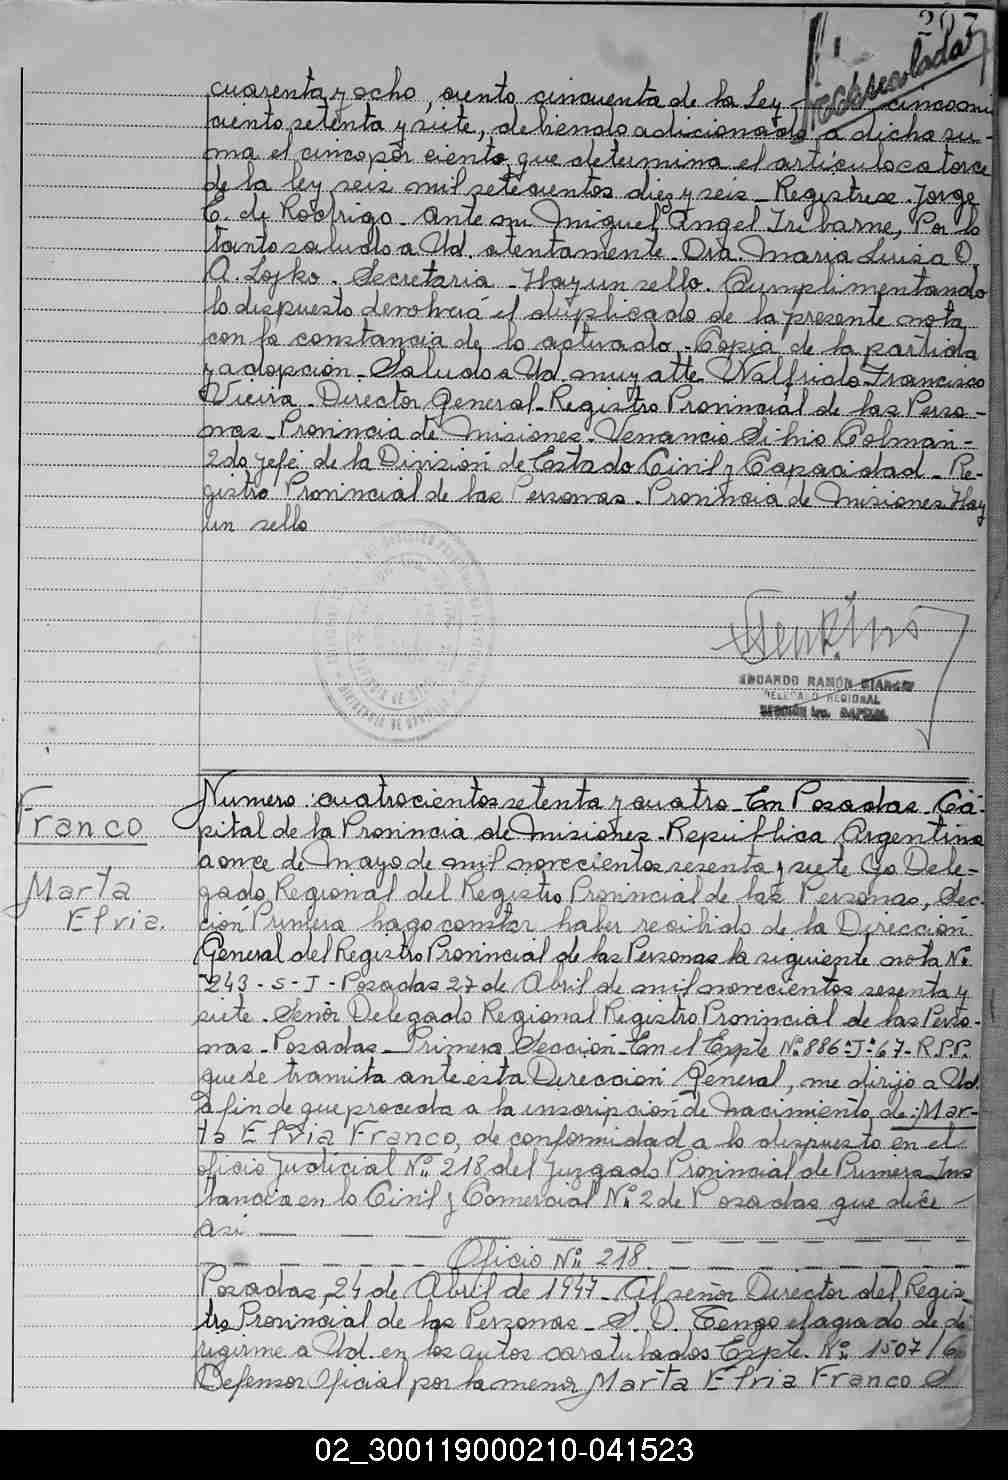 207
cuarenta y ocho, ciento cincuenta de la Ley cinco mil
ciento setenta y siete, debiendo adicionado a dicha su-
ma el cinco por ciento, que determina el artículo catorce
de la ley seis mil setecientos diez y seis - Registrese. Jorge
E. de Rodrigo. Ante mi Miguel Angel Iribarne, Por lo
tanto saludo a Ud. atentamente. Dra. Maria Luisa D.
A. Lojko. Secretaria - Hay un sello. Cumplimentando
lo dispuesto devolverá el duplicado de la presente nota
con la constancia de lo actuado. Copia de la partida
y adopción. Saludo a Ud. muy atte. Walfrido Francisco
Vieira - Director General - Registro Provincial de las Perso-
nas - Provincia de Misiones - Venancio Silvio Colman -
2do Jefe de la División de Estado Civil y Capacidad - Re-
gistro Provincial de las Personas. Provincia de Misiones Hay
un sello
EDUARDO RAMÓN
DELEGADO REGIONAL
SECCIÓN 1ra. CAPITAL
Franco
Marta
Elvia.
Numero: cuatrocientos setenta y cuatro - En Posadas - Ca-
pital de la Provincia de Misiones - Republica Argentina
a once de Mayo de mil novecientos sesenta y siete Yo Dele-
gado Regional del Registro Provincial de las Personas, Sec-
ción Primera hago constar haber recibido de la Dirección
General del Registro Provincial de las Personas la siguiente nota Nº
243 - S - J - Posadas 27 de Abril de mil novecientos sesenta y
siete. Señor Delegado Regional Registro Provincial de las Perso-
nas - Posadas - Primera Sección - En el Expte Nº 886-J-67- R.P.P.
que se tramita ante esta Dirección General, me dirijo a Ud.
a fin de que proceda a la inscripción de Nacimiento de: Mar-
ta Elvia Franco, de conformidad a lo dispuesto en el
oficio Judicial Nº 218 del Juzgado Provincial de Primera Ins
tancia en lo Civil y Comercial Nº 2 de Posadas que dice
asi
Oficio Nº 218.
Posadas, 24 de Abril de 1947 - Al señor Director del Regis-
tro Provincial de las Personas - S. D. Tengo el agrado de di
rigirme a Ud. en los autos caratulados Expte. Nº 1507/6
Defensor Oficial por la menor Marta Elvia Franco S/
02_300119000210-041523